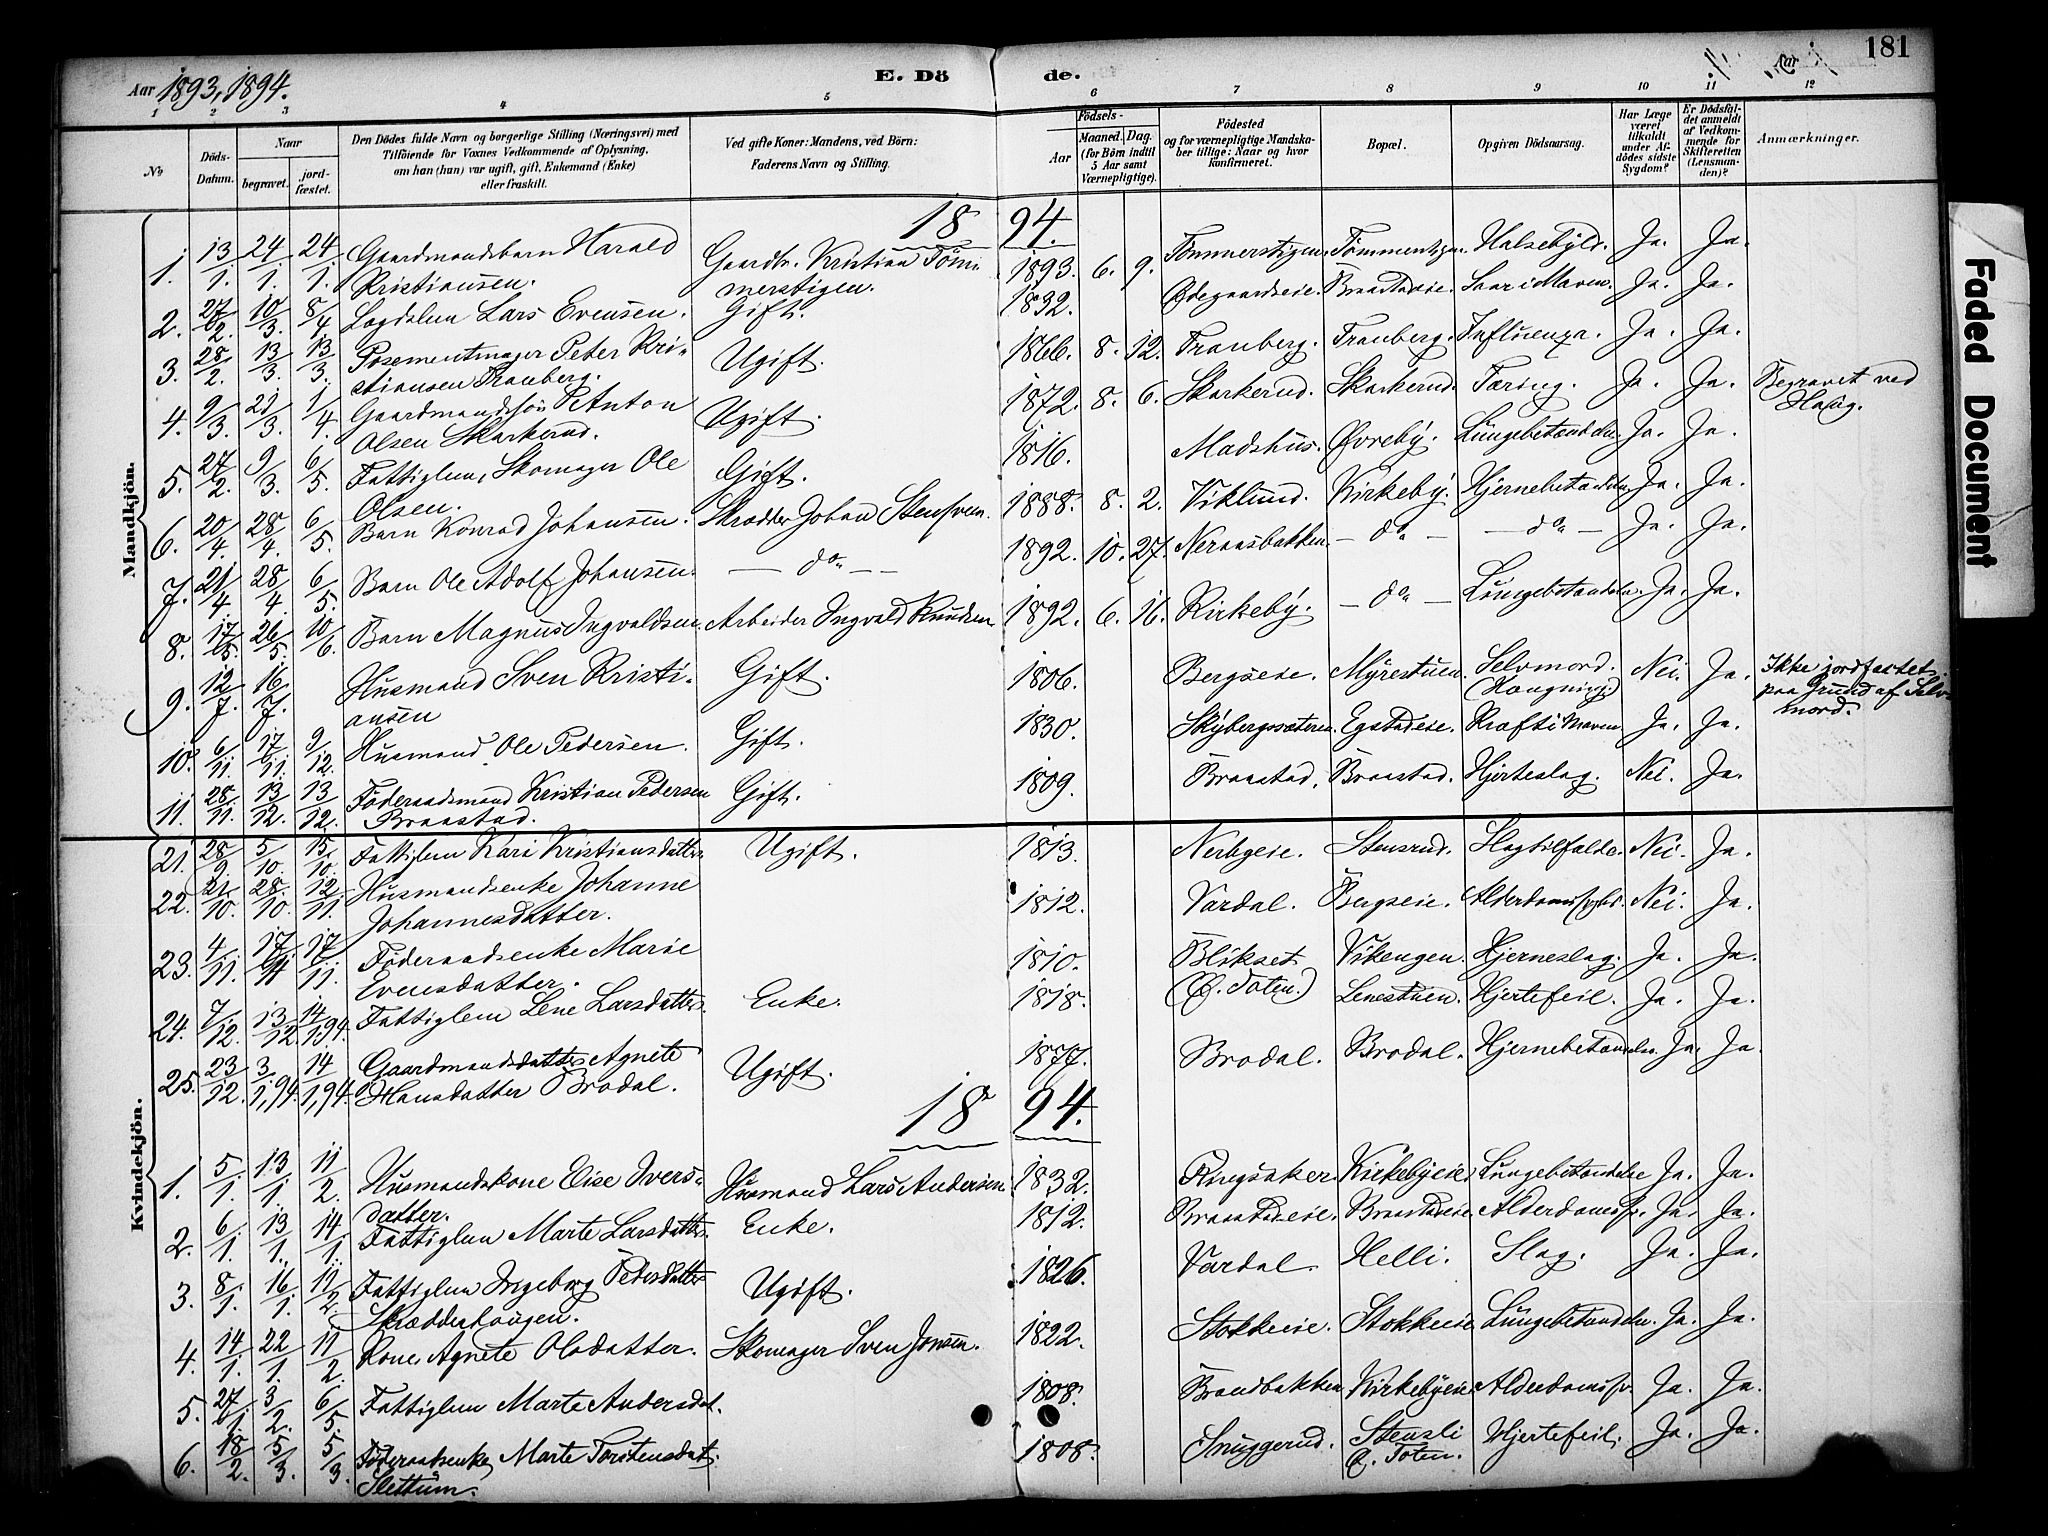 181
Aar 1893, 1894.
E. Dö de.
1 2 3 4 5 6 7 8 9 10 11 12
No
Döds-Datum.
Naar
begravet.
jordfæstet.
Den Dödes fulde Navn og borgerlige Stilling (Næringsvei) med
Tilföiende for Voxnes Vedkommende af Oplysning,
om han (hun) var ugift, gift, Enkemand (Enke)
eller fraskilt.
Ved gifte Koner: Mandens, ved Börn:
Faderens Navn og Stilling.
Födsels-
Aar
Maaned. Dag.
(for Börn indtil
5 Aar samt
Værnepligtige).
Födested
og for værnepligtige Mandskaber tillige: Naar og hvor
konfirmeret.
Bopæl.
Opgiven Dödsaarsag.
Har Læge
været
tilkaldt
under Afdödes sidste
Sygdom?
Er Dödsfaldet anmeldt
af Vedkommende for
Skifteretten
(Lensmanden)?
Anmærkninger.
Mandkjön.
18 94.
1. 13/1. 24/1. 24/1. Gaardmandsbarn Harald Kristiansen. Gaardbr. Kristian Tömmerstigen. 1893. 6. 9. Tömmerstigen. Tömmerstigen. Halsebyld. Ja. Ja.
2. 27/2. 10/3. 8/4. Logdslem Lars Evensen. Gift. 1832. Ödegaardseie. Braastadeie. Saar i Maven. Ja. Ja.
3. 28/2. 13/3. 13/3. Posementmager Peter Kristiansen Tranberg. Ugift. 1866. 8. 12. Tranberg. Tranberg. Influenza. Ja. Ja.
4. 9/3. 21/3. 1/4. Gaardmandssön P. Anton Olsen Skarkerud. Ugift. 1872. 8. 6. Skarkerud. Skarkerud. Tæring. Ja. Ja. Begravet ved Haug.
5. 27/2. 9/3. 6/5. Fattiglem, Skomager Ole Olsen. Gift. 1816. Madshus. Övreby. Lungebetændelse. Ja. Ja.
6. 20/4. 28/4. 6/5. Barn Konrad Johansen. Skrædder Johan Stensveen. 1888. 8. 2. Viklund. Kirkeby. Hjernebetændelse. Ja. Ja.
7. 21/4 28/4. 6/5. Barn Ole Adolf Johansen. — do — 1892. 10. 27. Neraasbakken. — do — — do — Ja. Ja.
8. 17/5. 26/5. 10/6. Barn Magnus Ingvaldsen. Arbeider Ingvald Knudsen 1892. 6. 16. Kirkeby. — do — Lungebetændelse. Ja. Ja.
9. 12/7. 16/7. Husmand Sven Kristiansen Gift. 1806. Bergseie. Myrestuen. Selvmord. (Hængning). Nei. Ja. Ikke jordfæstet paa Grund af Selvmord.
10. 6/11. 17/11. 9/12. Husmand Ole Pedersen. Gift. 1830. Skybergssæteren. Egstadeie. Kræft i Maven. Ja. Ja.
11. 28/11. 13/12. 13/12. Föderaadsmand Kristian Pedersen Braastad. Gift. 1809. Braastad. Braastad. Hjerteslag. Nei. Ja.
Kvindekjön.
21. 28/9. 5/10. 15/10. Fattiglem Kari Kristiansdatter. Ugift. 1813. Nerbyeie. Stensrud. Slagtilfælde. Nei. Ja.
22. 21/10. 28/10. 12/11. Husmandsenke Johanne Johannesdatter. 1812. Vardal. Bergseie. Alderdomssvaghed. Nei. Ja.
23. 4/11. 17/11 17/11. Föderaadsenke Marie Evensdatter. 1810. Blikset (Ö. Toten.) Vikengen. Hjerneslag. Ja. Ja.
24. 7/12. 13/12. 14/1,94. Fattiglem Lene Larsdatter. Enke. 1818. Lenestuen. Hjertefeil. Ja. Ja.
25. 23/12. 3/1,94. 14/1,94. Gaardmandsdatter Agnete Hansdatter Brodal. Ugift. 1877. Brodal. Brodal. Hjernebetændelse. Ja. Ja.
18 94.
1. 5/1. 13/1. 11/2. Husmandskone Elise Iversdatter. Husmand Lars Andersen. 1832. Ringsaker. Kirkebyeie. Lungebetændelse Ja. Ja.
2. 6/1. 13/1. 14/1. Fattiglem Marte Larsdatter. Enke. 1812. Braastadeie. Braastadeie. Alderdomssv. Ja. Ja.
3. 8/1. 16/1. 12/2. Fattiglem Ingeborg Pedersdatter Skrædderhaugen. Ugift. 1826. Vardal. Helli. Slag. Ja. Ja.
4. 14/1. 22/1. 11/2. Kone, Agnete Olsdatter. Skomager Sven Jonsen. 1822. Stokkeeie. Stokkeeie. Lungebetændelse. Ja. Ja.
5. 27/1. 3/2. 6/5. Fattiglem Marte Andersdat. 1808. Brandbakken Kirkebyeie Alderdomssv. Ja. Ja.
6. 18/2. 5/3. 5/3. Föderaadsenke, Marte Torstensdat. Slettum. 1808. Snuggerud. Stensli Ö. Toten. Hjertefeil. Ja. Ja.
Faded Document